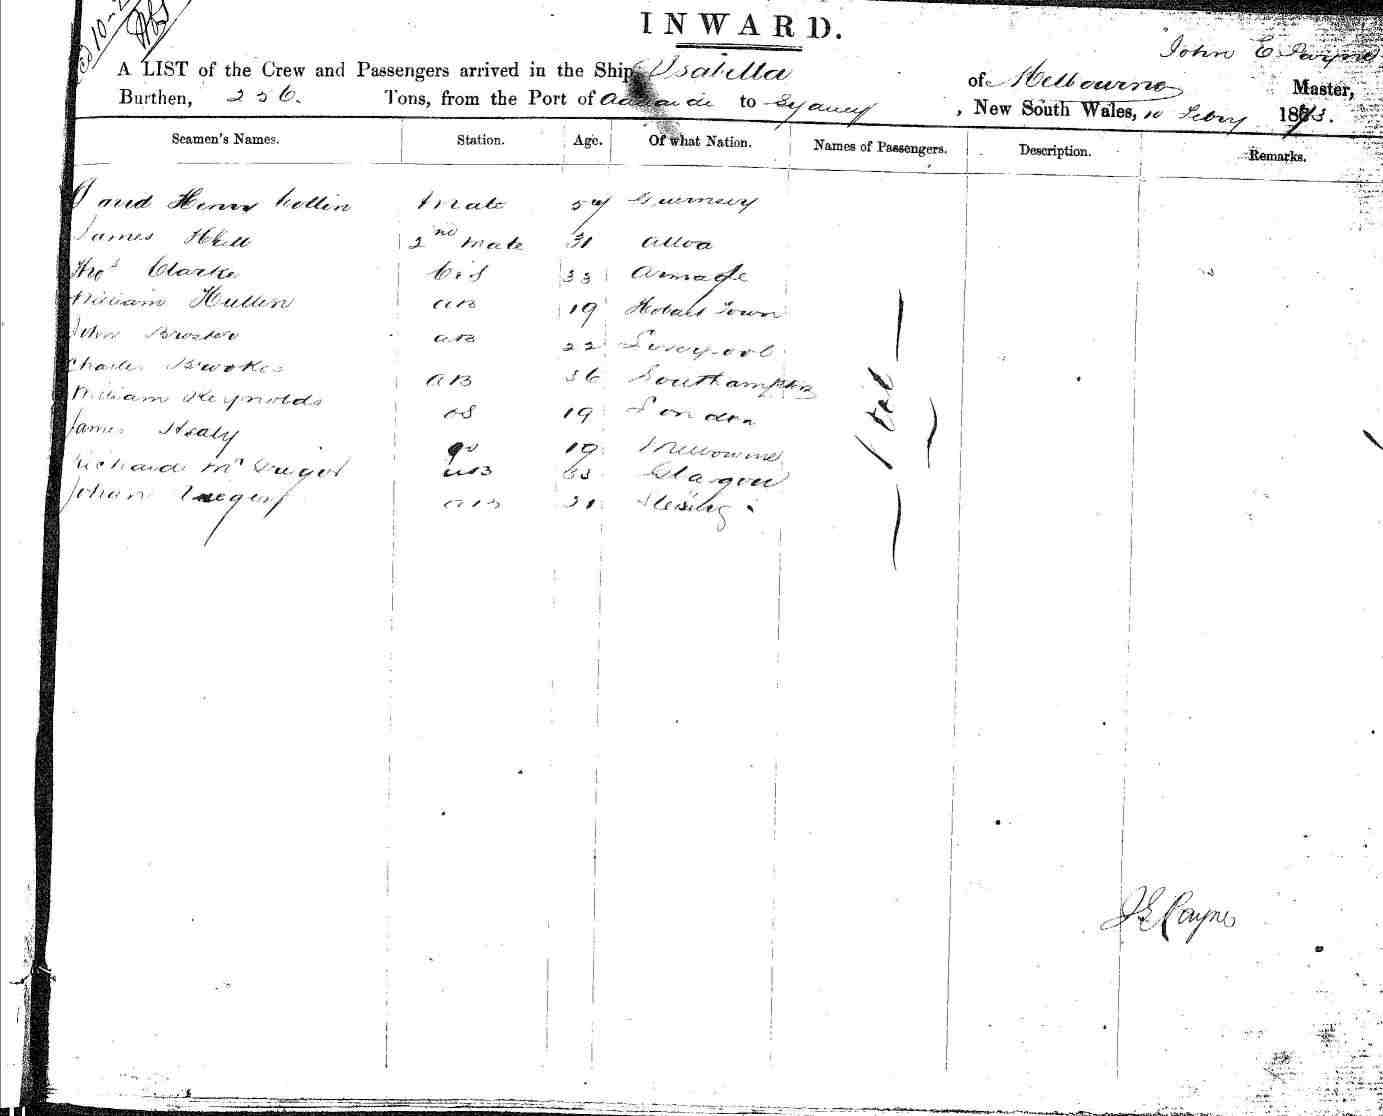 INWARD.
John E Payne
A LIST of the Crew and Passengers arrived in the Ship Isabella of Melbourne Master,
Burthen, 236. Tons, from the Port of Adelaide to Sydney, New South Wales, 10 Febry 1873.
Seamen's Names. Station. Age. Of what Nation. Names of Passengers. Description. Remarks.
Henry Collin Mate 54 Guernsey
James Hill 2nd Mate 31 Alloa
Thos Clarke 33
William Hullin AB 19 Hobart Town
John AB 22 Liverpool
Charles Brookes AB 36 Southampton
William Reynolds OS 19 London
James Healy 19 Melbourne
Richard AB 33 Glasgow
Johan AB
J E Payne